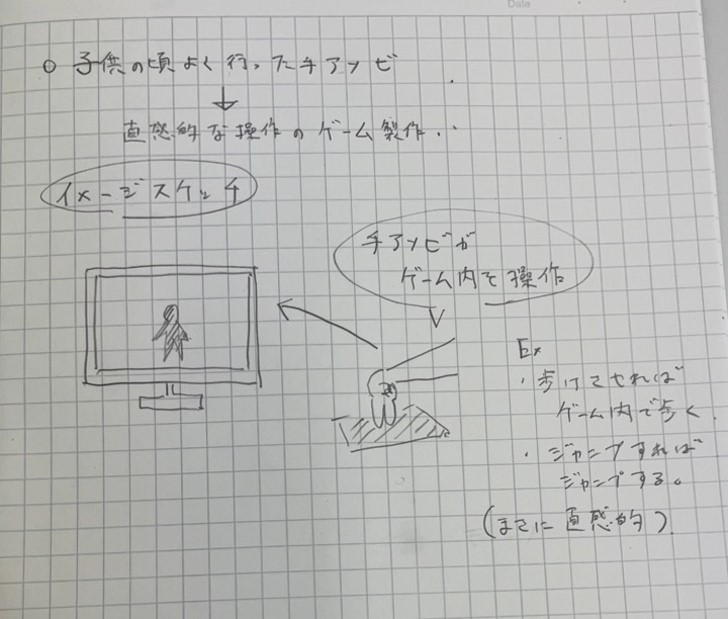 Date
○ 子供の頃よく行ったチアソビ
↓
直感的な操作のゲーム製作・・
イメージスケッチ
手アソビが
ゲーム内を操作
Ex
・歩けさせれば
ゲーム内で歩く
・ジャンプすれば
ジャンプする。
(まさに直感的)